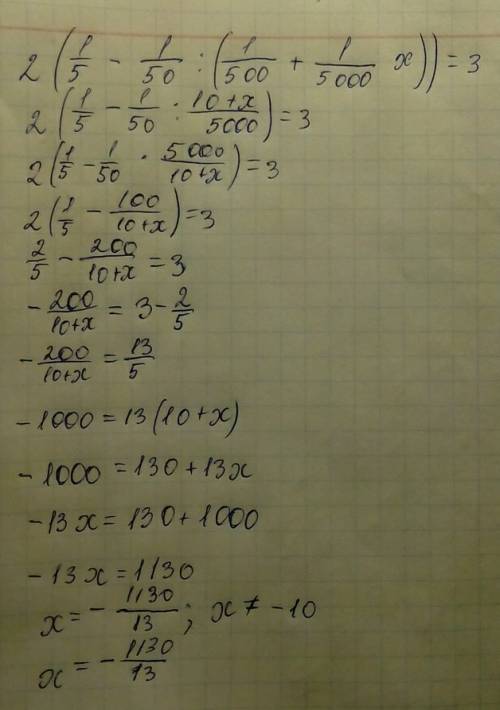 2 (1/5 - 1/50 : (1/500 + 1/5000 x)) = 3
2 (1/5 - 1/50 : (10+x)/5000) = 3
2 (1/5 - 1/50 · 5000/(10+x)) = 3
2 (1/5 - 100/(10+x)) = 3
2/5 - 200/(10+x) = 3
- 200/(10+x) = 3 - 2/5
- 200/(10+x) = 13/5
-1000 = 13 (10+x)
-1000 = 130 + 13x
-13x = 130 + 1000
-13x = 1130
x = - 1130/13 ; x ≠ -10
x = - 1130/13